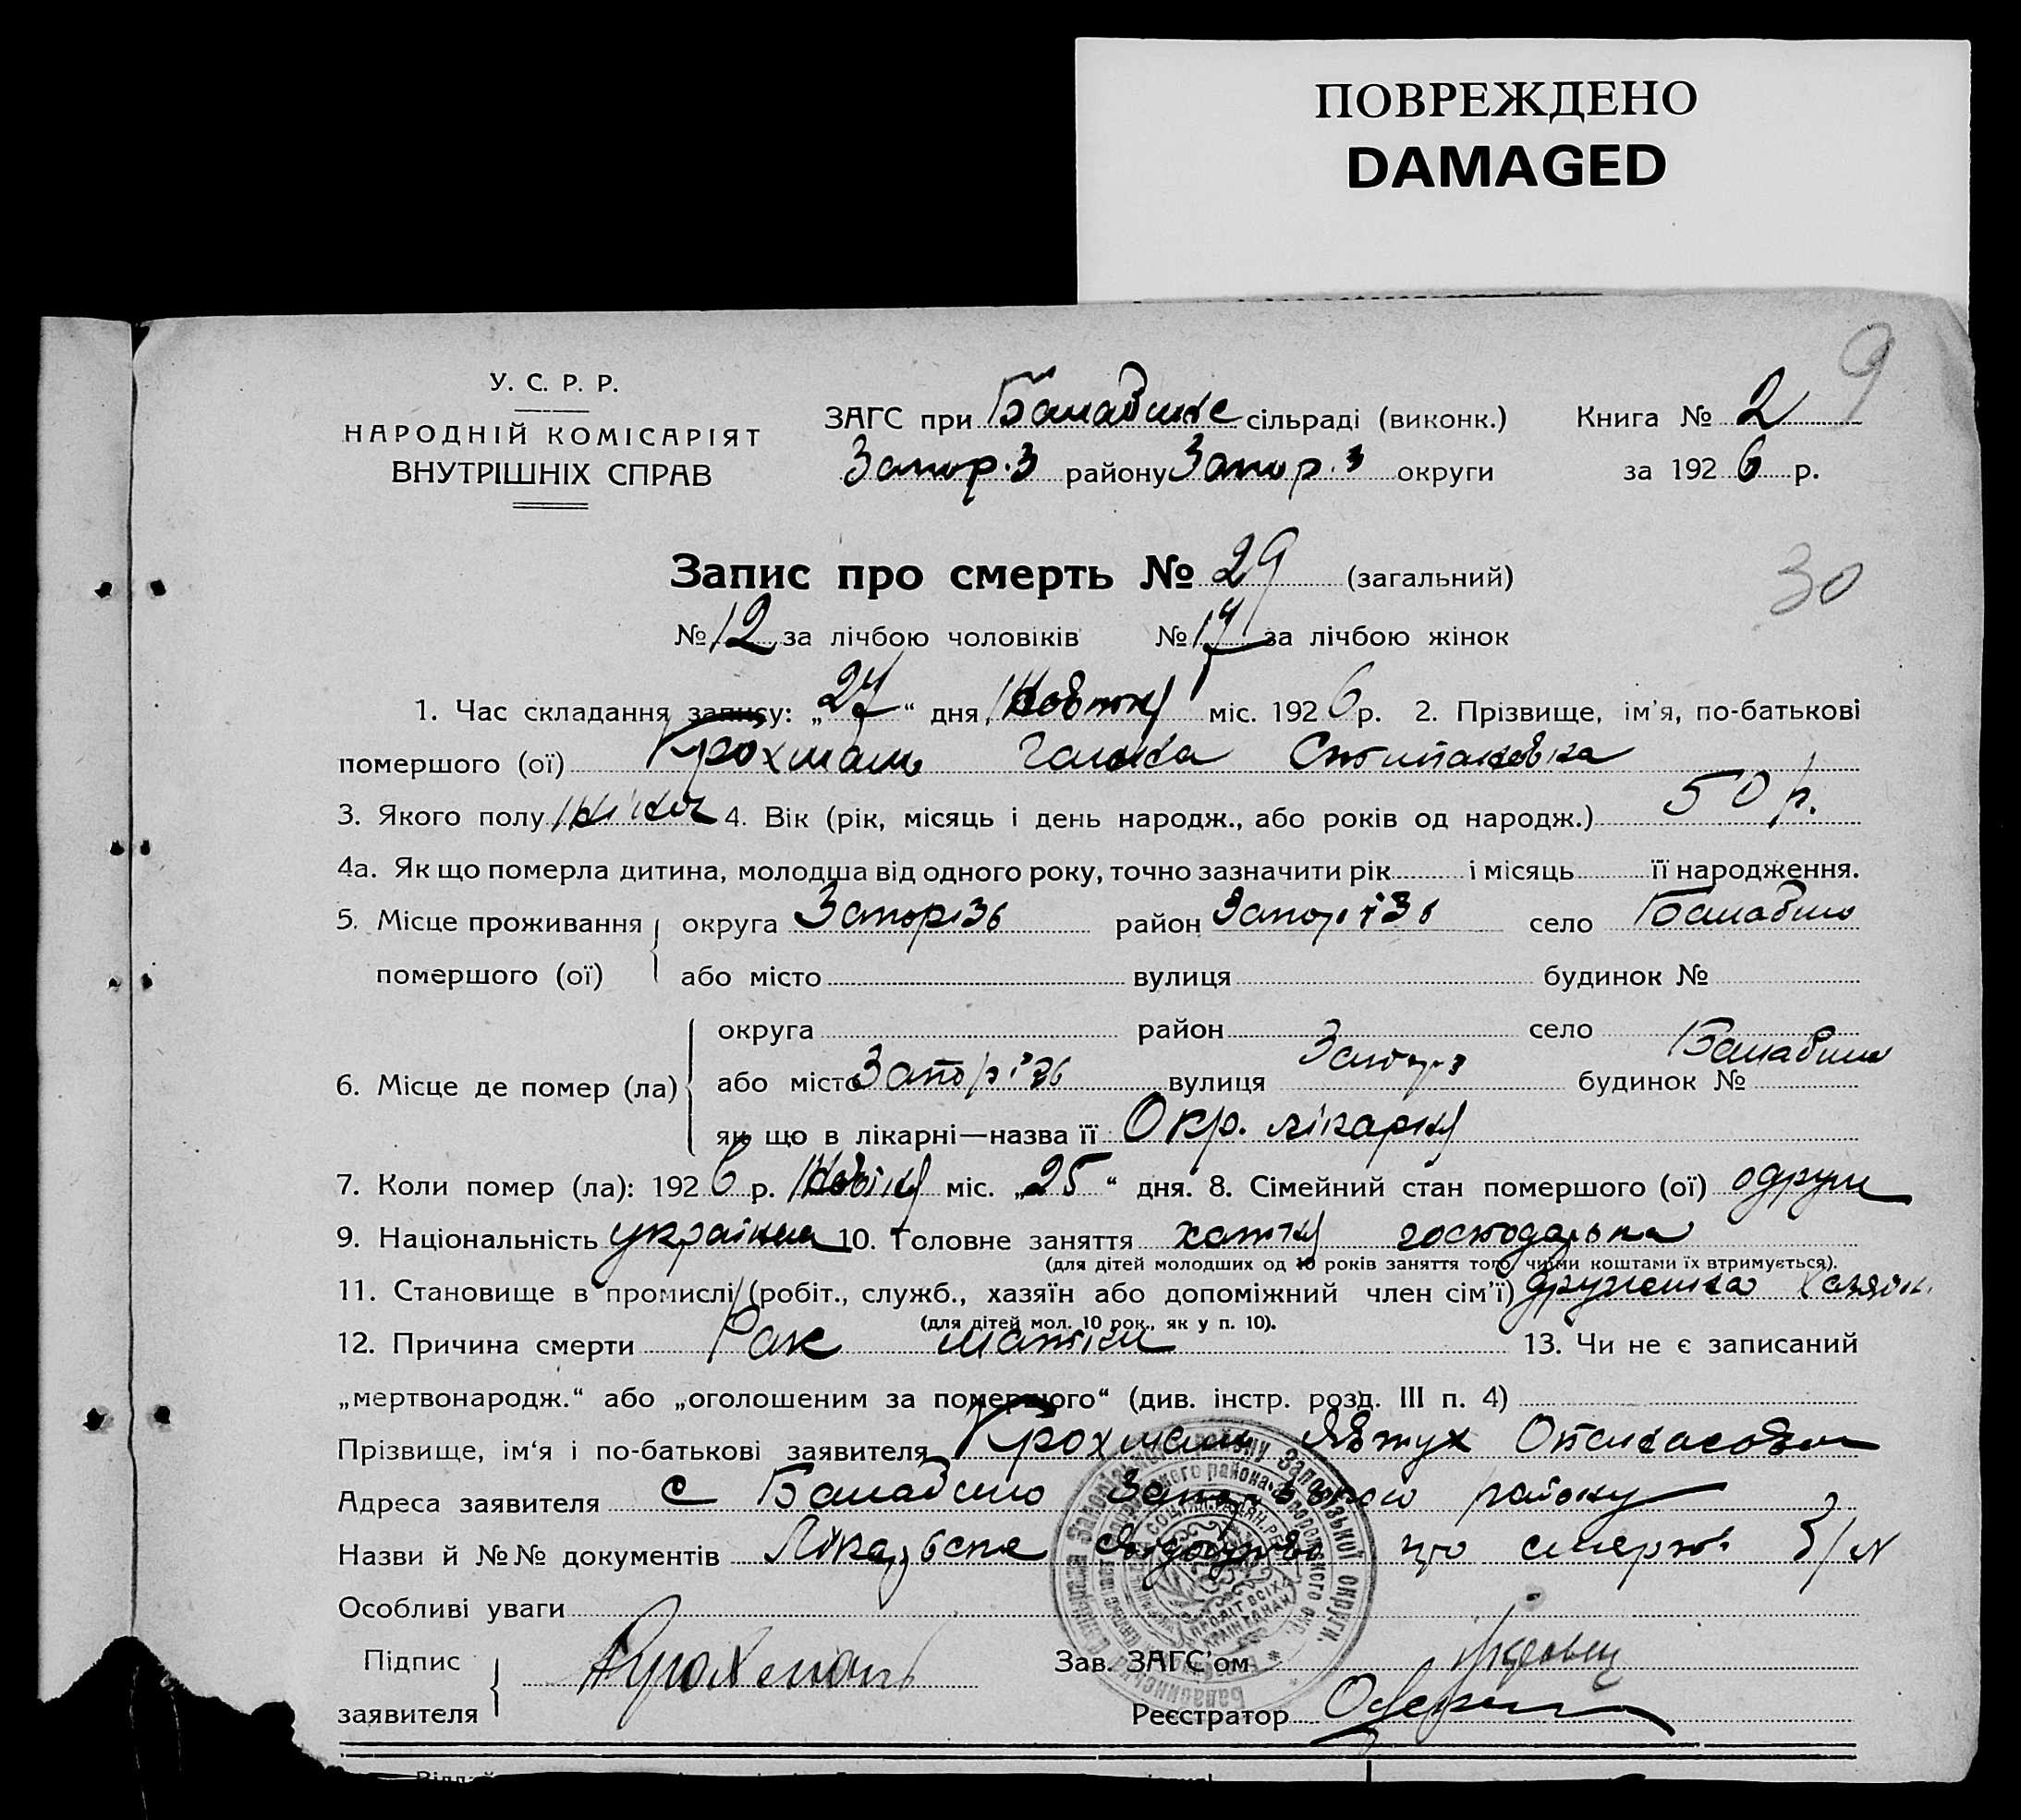 ПОВРЕЖДЕНО
DAMAGED
9
У. С. Р. Р.
НАРОДНІЙ КОМІСАРІЯТ
ВНУТРІШНІХ СПРАВ
ЗАГС при сільраді (виконк.) Книга № 2
Запор.з району Запор.з округи за 1926 р.
Запис про смерть № 29 (загальний)
30
№ 12 за лічбою чоловіків № 17 за лічбою жінок
1. Час складання запису: „27“ дня міс. 1926 р. 2. Прізвище, ім'я, по-батькові
помершого (ої) Крохмаль
3. Якого полу 4. Вік (рік, місяць і день народж., або років од народж.) 50 р.
4а. Як що померла дитина, молодша від одного року, точно зазначити рік і місяць її народження.
5. Місце проживання округа Запорізь район Запорізь село Балабино
помершого (ої) або місто вулиця будинок №
округа район село Балабино
6. Місце де помер (ла) або місто Запорізь вулиця Запорз будинок №
як що в лікарні—назва її Окр. лікарня
7. Коли помер (ла): 1926 р. міс. „25“ дня. 8. Сімейний стан помершого (ої) одруж
9. Національність українка 10. Головне заняття хатня господарька
(для дітей молодших од 10 років заняття того, чиїми коштами їх втримується).
11. Становище в промислі (робіт., служб., хазяїн або допоміжний член сім'ї) дружина
(для дітей мол. 10 рок., як у п. 10).
12. Причина смерти Рак матки 13. Чи не є записаний
„мертвонародж.“ або „оголошеним за помершого“ (див. інстр. розд. III п. 4)
Прізвище, ім'я і по-батькові заявителя Крохмаль Явтух Опанасович
Адреса заявителя с Балабино району
Назви й №№ документів Лікарське про смерть
Особливі уваги
Підпис Зав. ЗАГС'ом
заявителя Реєстратор